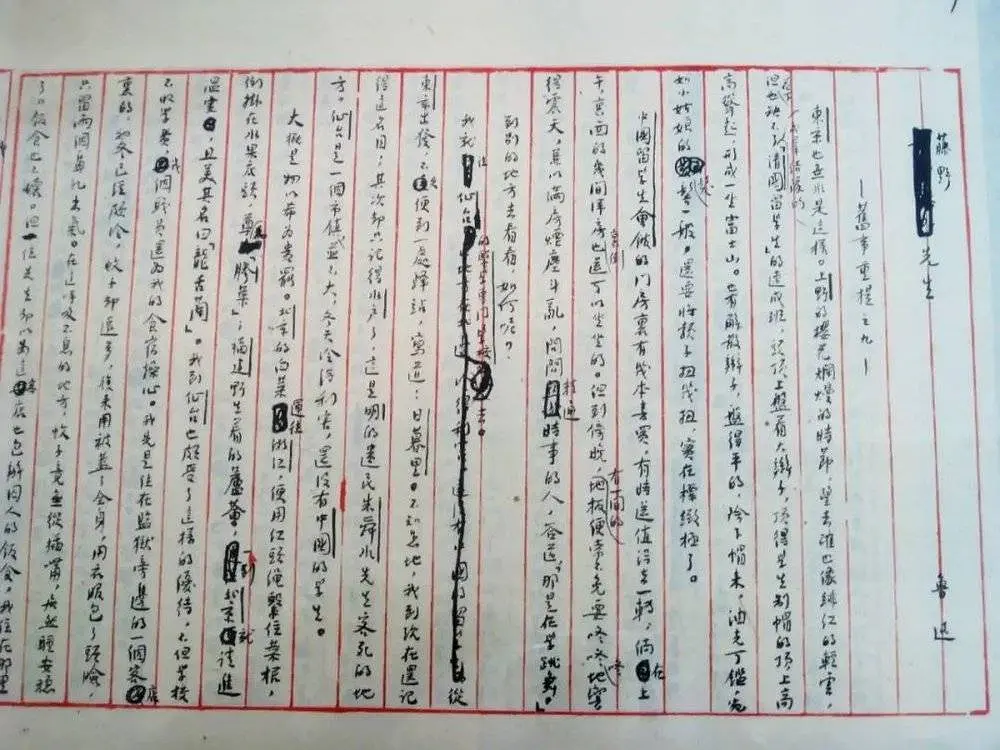 藤野先生 魯迅
—舊事重提之九—
東京也無非是這樣。上野的櫻花爛熳的時節,望去確也像緋紅的輕雲,
但花下也缺不了成羣結隊的「清國留學生」的速成班,頭頂上盤着大辮子,頂得學生制帽的頂上高
高聳起,形成一座富士山。也有解散辮子,盤得平的,除下帽來,油光可鑑,宛
如小姑娘的髮髻一般,還要將脖子扭幾扭。實在標緻極了。
中國留學生會館的門房裏有幾本書買,有時還值得去一轉;倘在上
午,裏面的幾間洋房也還可以坐坐的。但到傍晚,有一間的地板便常不免要咚咚咚地響
得震天,兼以滿房煙塵斗亂;問問精通時事的人,答道,「那是在學跳舞。」
到別的地方去看看,如何呢?
我就往仙台的醫學專門學校去。從
東京出發,不久便到一處驛站,寫道:日暮里。不知怎地,我到現在還記
得這名目。其次却只記得水戶了,這是明的遺民朱舜水先生客死的地
方。仙台是一個市鎮,並不大;冬天冷得利害;還沒有中國的學生。
大概是物以希為貴罷。北京的白菜運往浙江,便用紅頭繩繫住菜根,
倒掛在水果店頭,尊為「膠菜」;福建野生着的蘆薈,一到北京就請進
溫室,且美其名曰「龍舌蘭」。我到仙台也頗受了這樣的優待,不但學校
不收學費,幾個職員還為我的食宿操心。我先是住在監獄旁邊的一個客店
裏的,初冬已經頗冷,蚊子却還多,後來用被蓋了全身,用衣服包了頭臉,
只留兩個鼻孔出氣。在這呼吸不息的地方,蚊子竟無從插嘴,居然睡安穩
了。飯食也不壞。但一位先生却以為這客店也包辦囚人的飯食,我住在那里